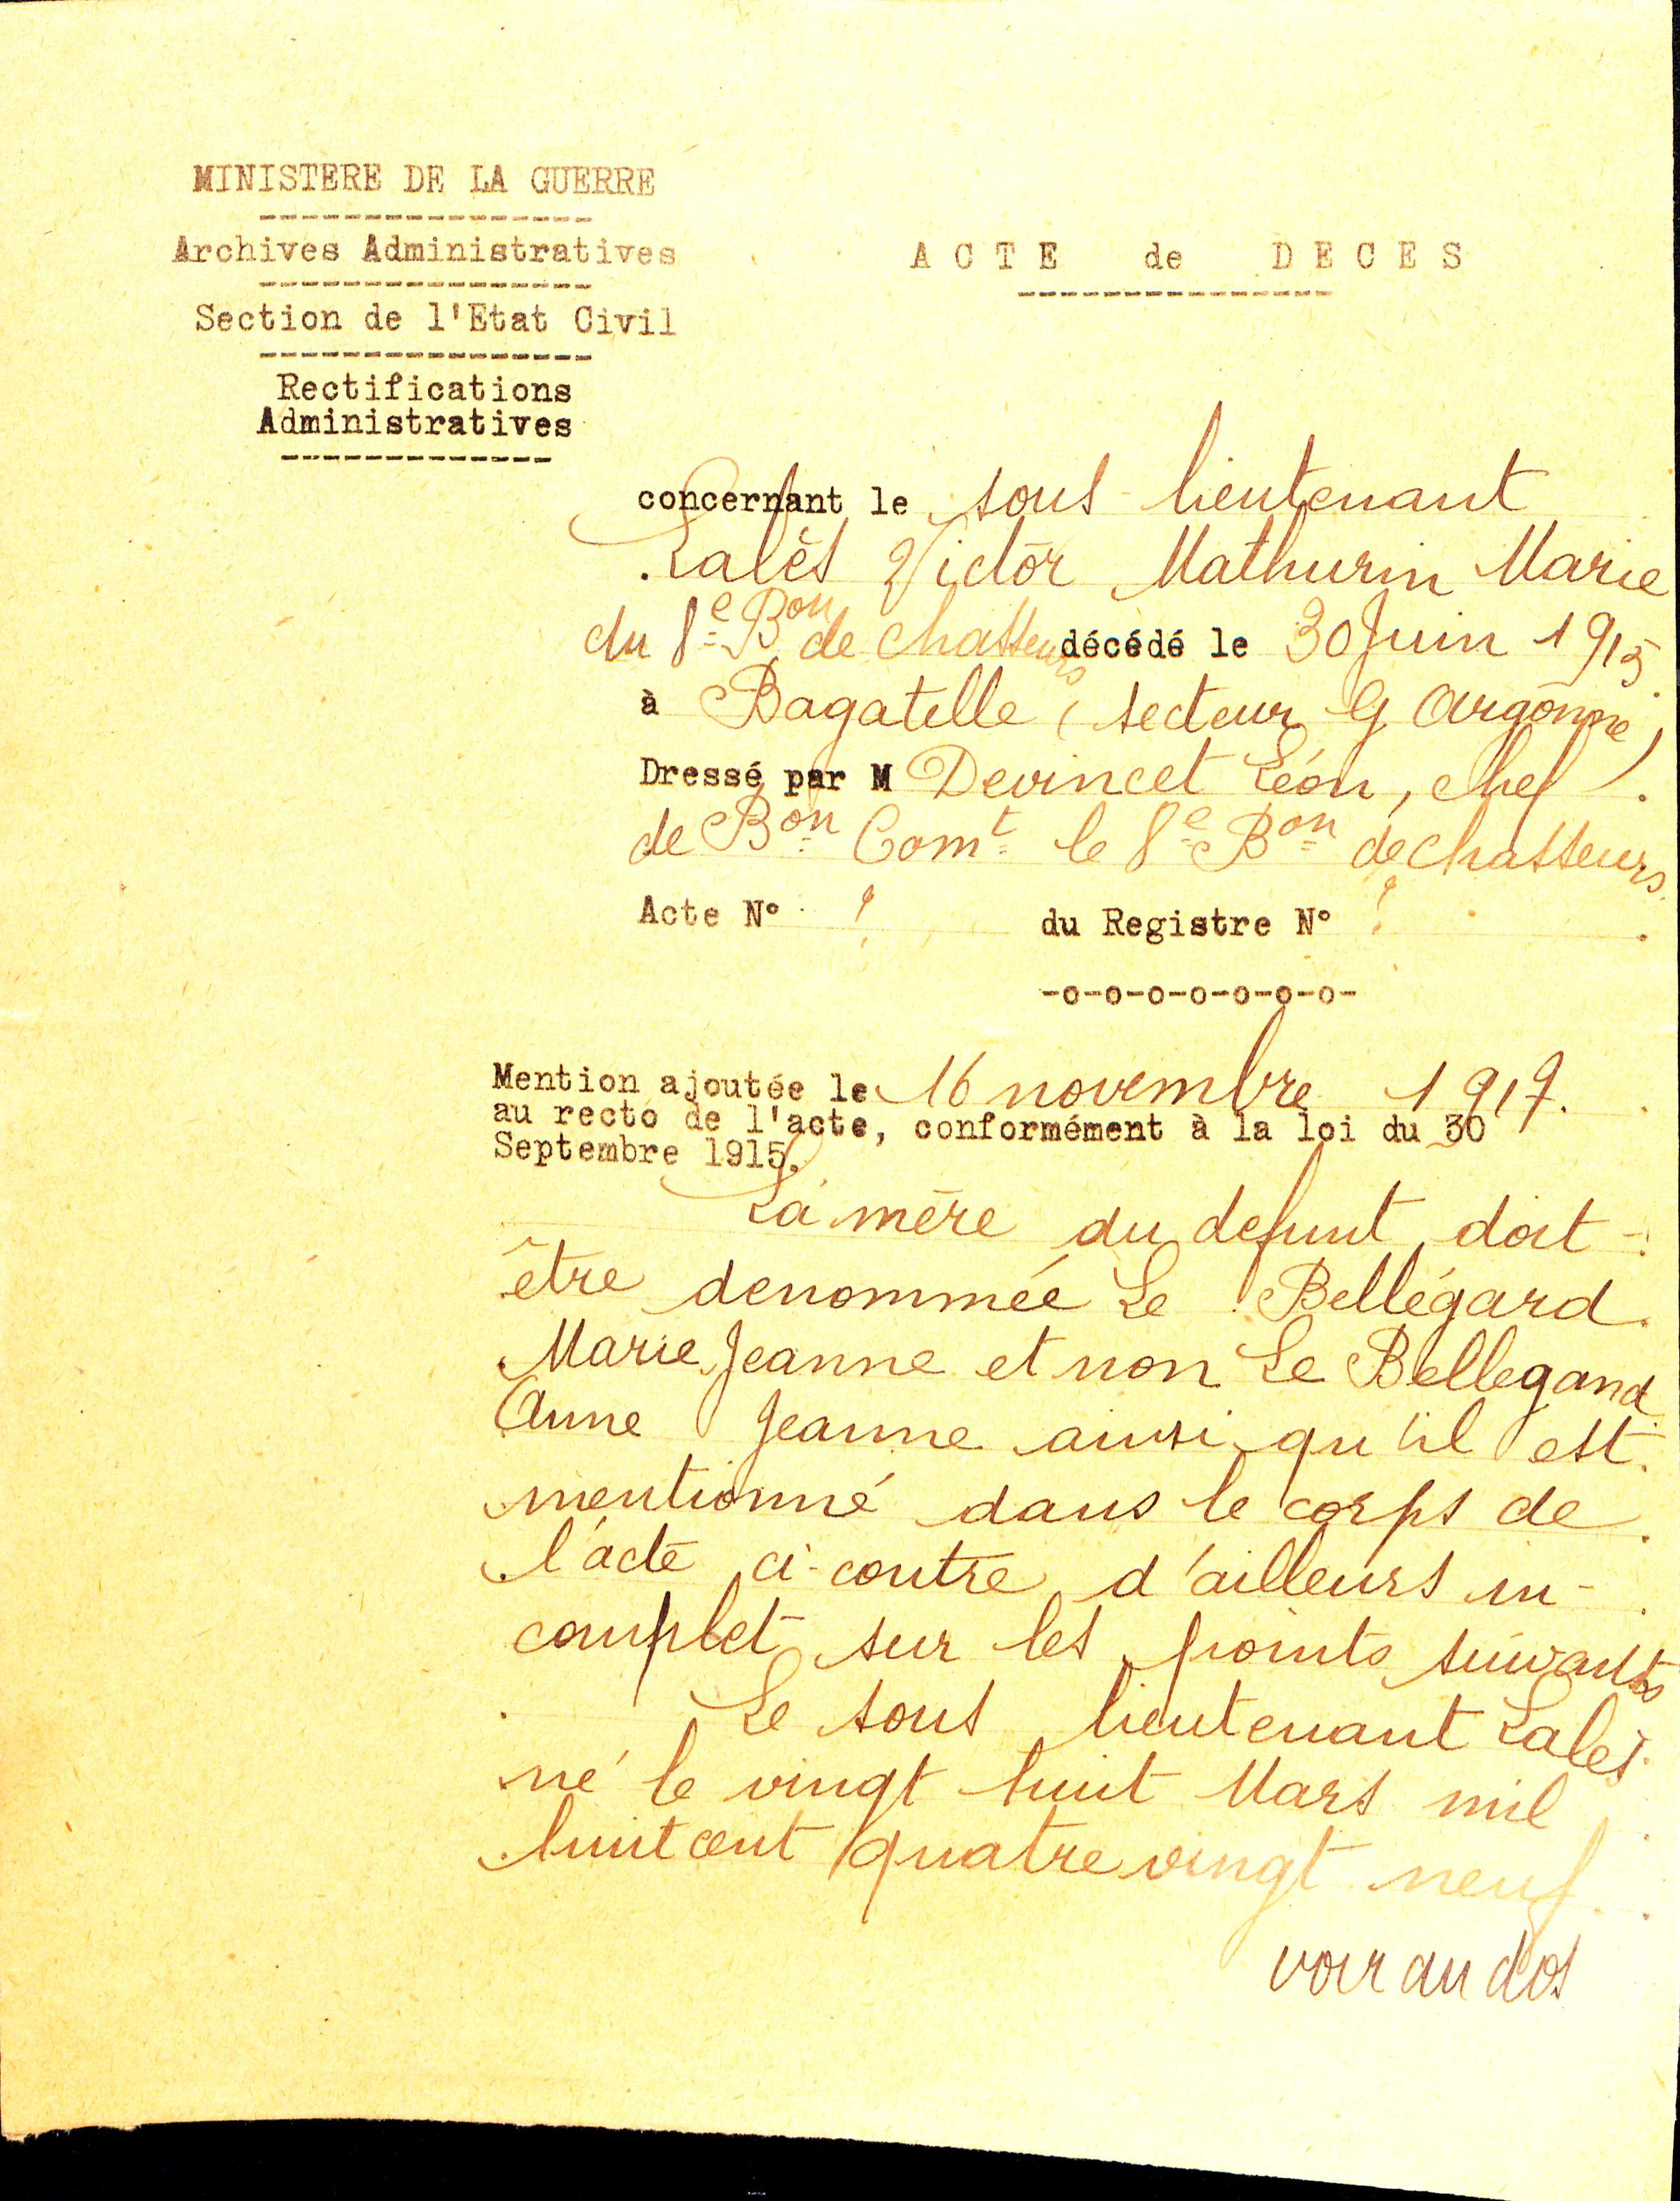 MINISTERE DE LA GUERRE
Archives Administratives
Section de l'Etat Civil
Rectifications
Administratives
ACTE de DECES
concernant le sous-lieutenant
Lalès Victor Mathurin Marie
du 8e Bon de chasseurs décédé le 30 Juin 1915
à Bagatelle (secteur G Argonne)
Dressé par M Devincet Léon, chef
de Bon Comt le 8e Bon de chasseurs
Acte N° ? du Registre N° ?
-o-o-o-o-o-o-o-
Mention ajoutée le 16 novembre 1917.
au recto de l'acte, conformément à la loi du 30
Septembre 1915.
La mère du defunt doit
être denommée Le Bellégard
Marie Jeanne et non Le Bellegand
Anne Jeanne ainsi qu'il est
mentionné dans le corps de
l'acte ci-contre d'ailleurs in-
complet sur les points suivants
Le sous lieutenant Lalès
né le vingt huit Mars mil
huit cent quatre vingt neuf
voir au dos